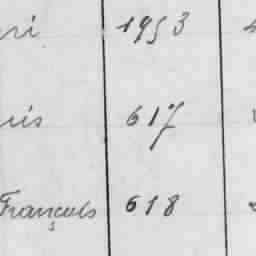 ri 1953
ris 617
Françuls 618